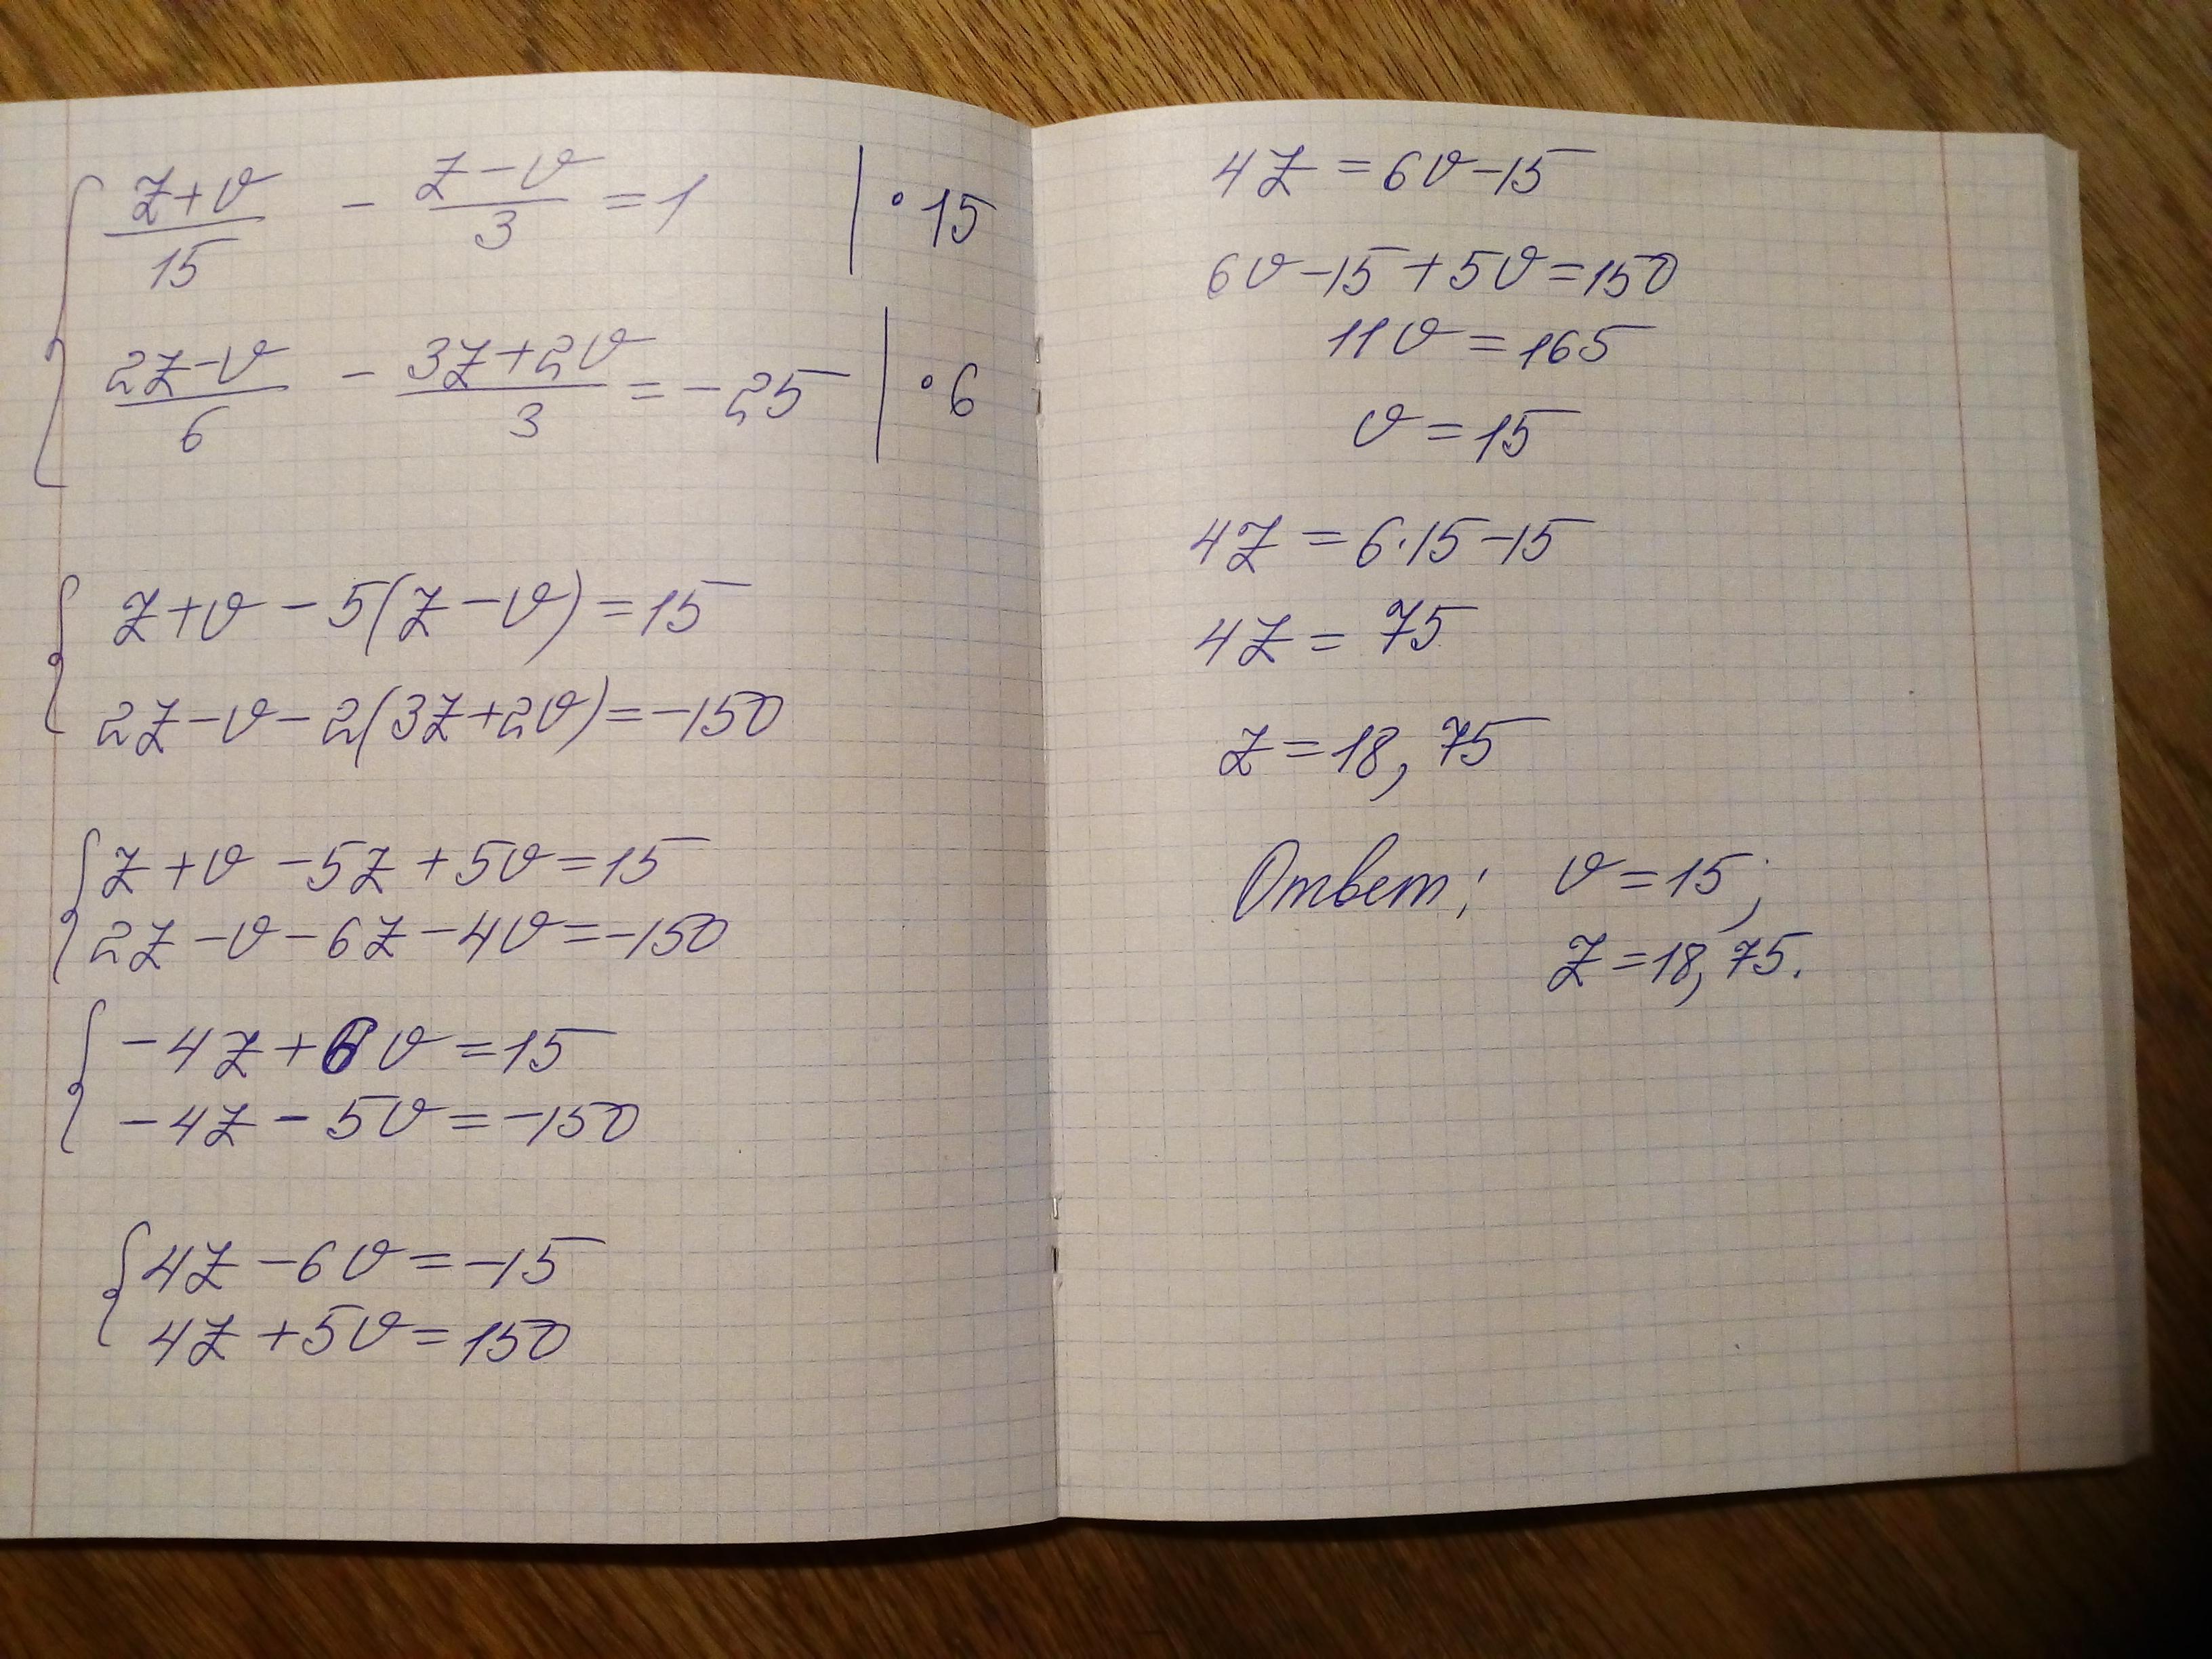 { (z+v)/15 - (z-v)/3 = 1 | · 15
(2z-v)/6 - (3z+2v)/3 = -25 | · 6
{ z+v - 5(z-v) = 15
2z-v-2(3z+2v) = -150
{ z+v-5z+5v=15
2z-v-6z-4v=-150
{ -4z+6v=15
-4z-5v=-150
{ 4z-6v=-15
4z+5v=150
4z=6v-15
6v-15+5v=150
11v=165
v=15
4z=6·15-15
4z=75
z=18,75
Ответ: v=15;
z=18,75.